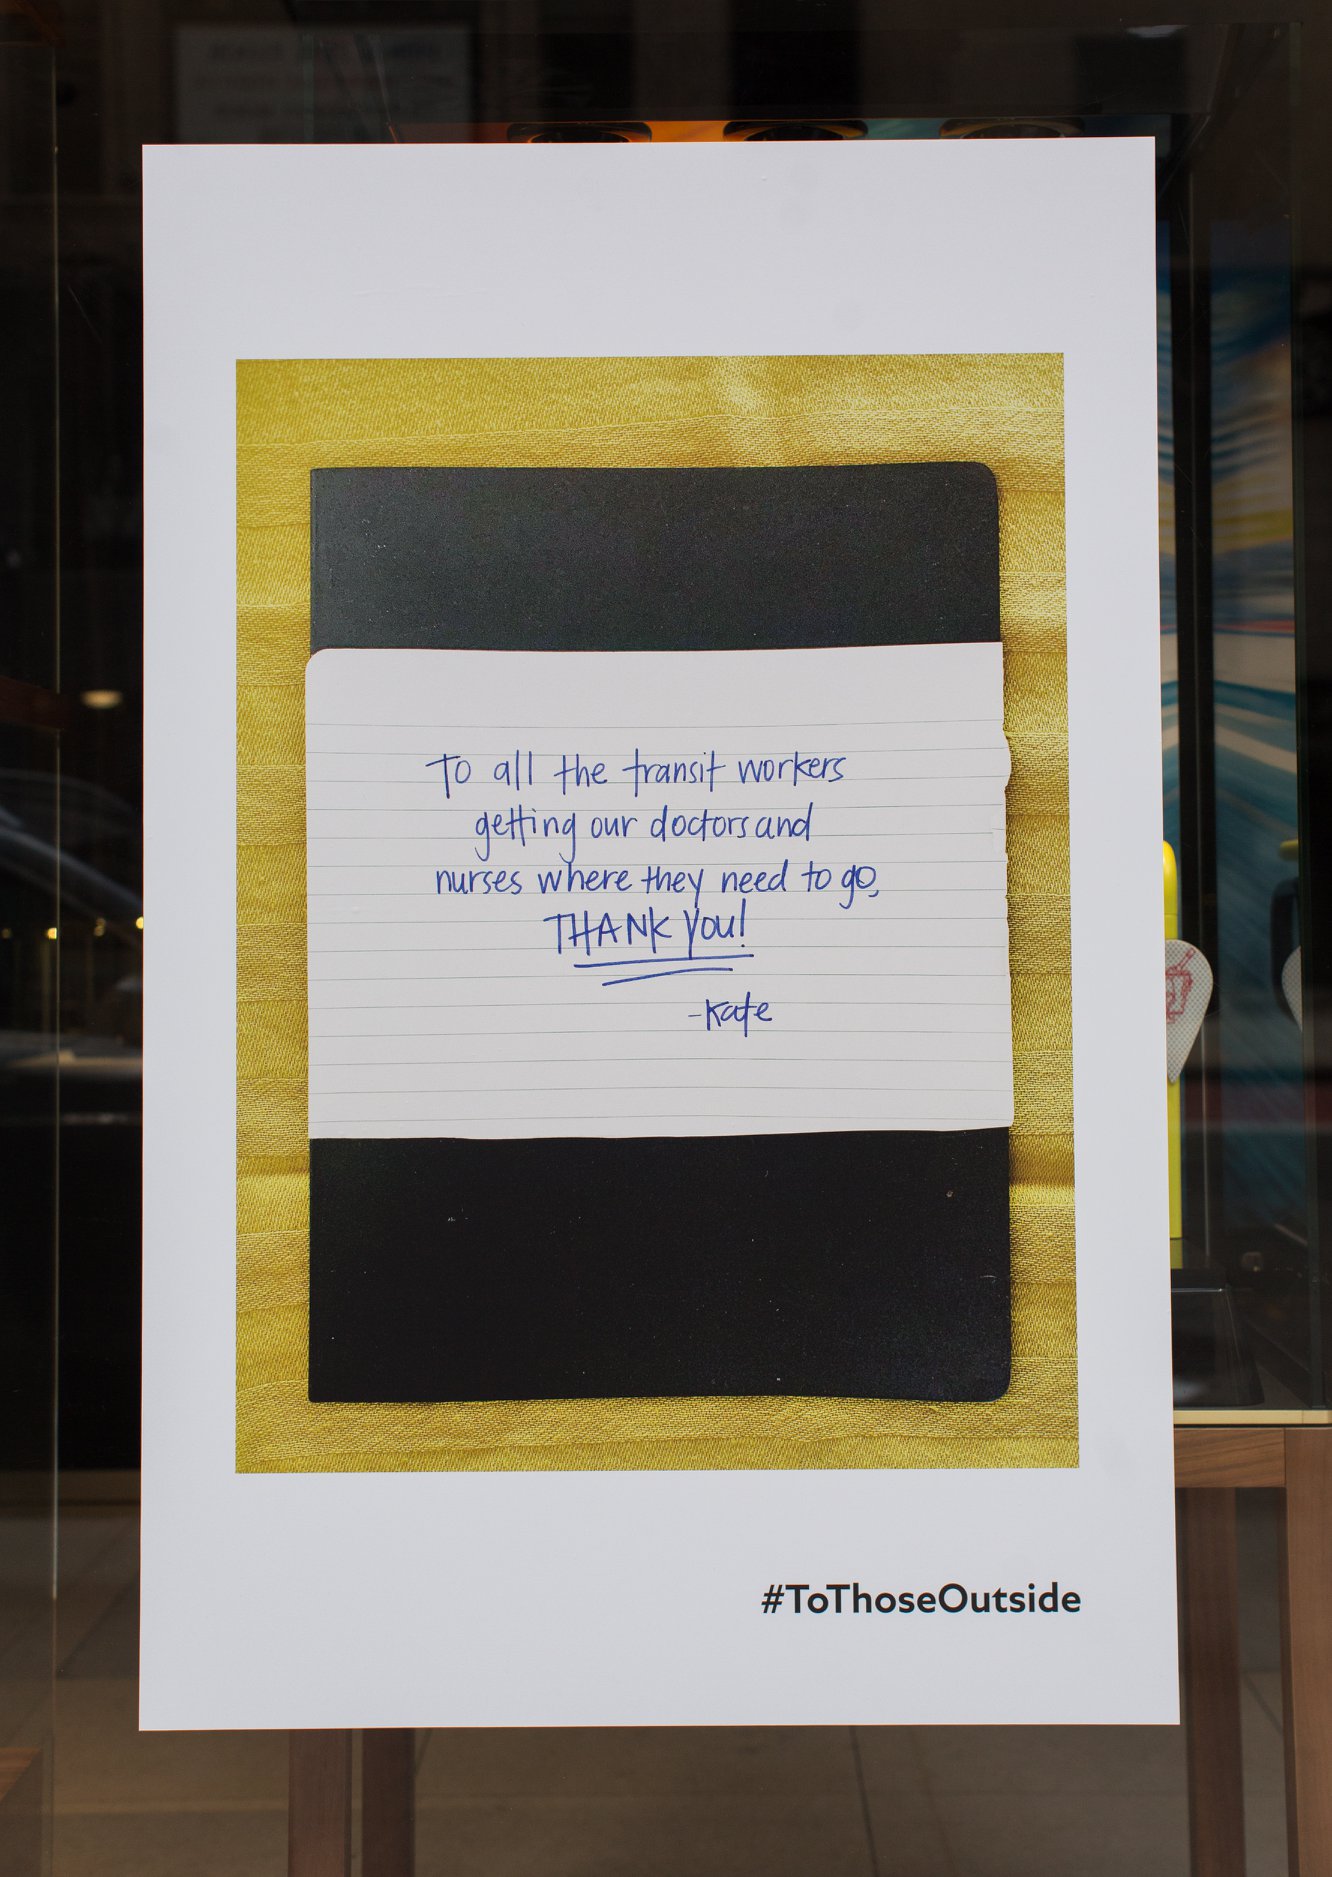 To all the transit workers
getting our doctors and
nurses where they need to go,
THANK YOU!
-Kate
#ToThoseOutside